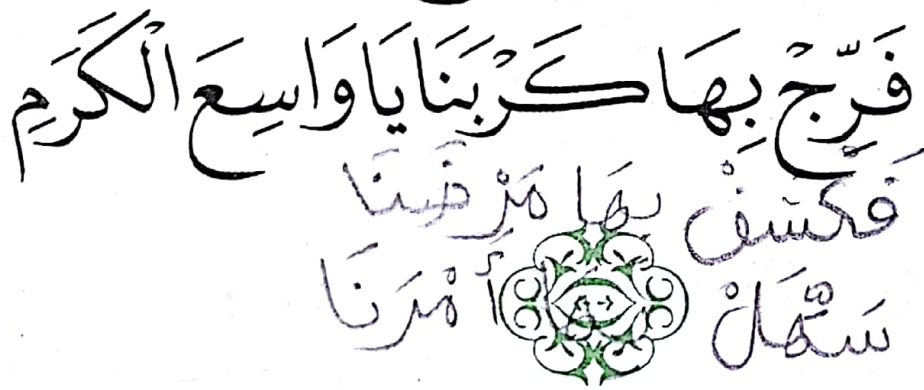 فَرِّجْ بِهَا كَرْبَنَا يَا وَاسِعَ الْكَرَمِ
فَكْشِفْ بِهَا مَرْضَنَا
سَهِّلْ بِهَا أَمْرَنَا